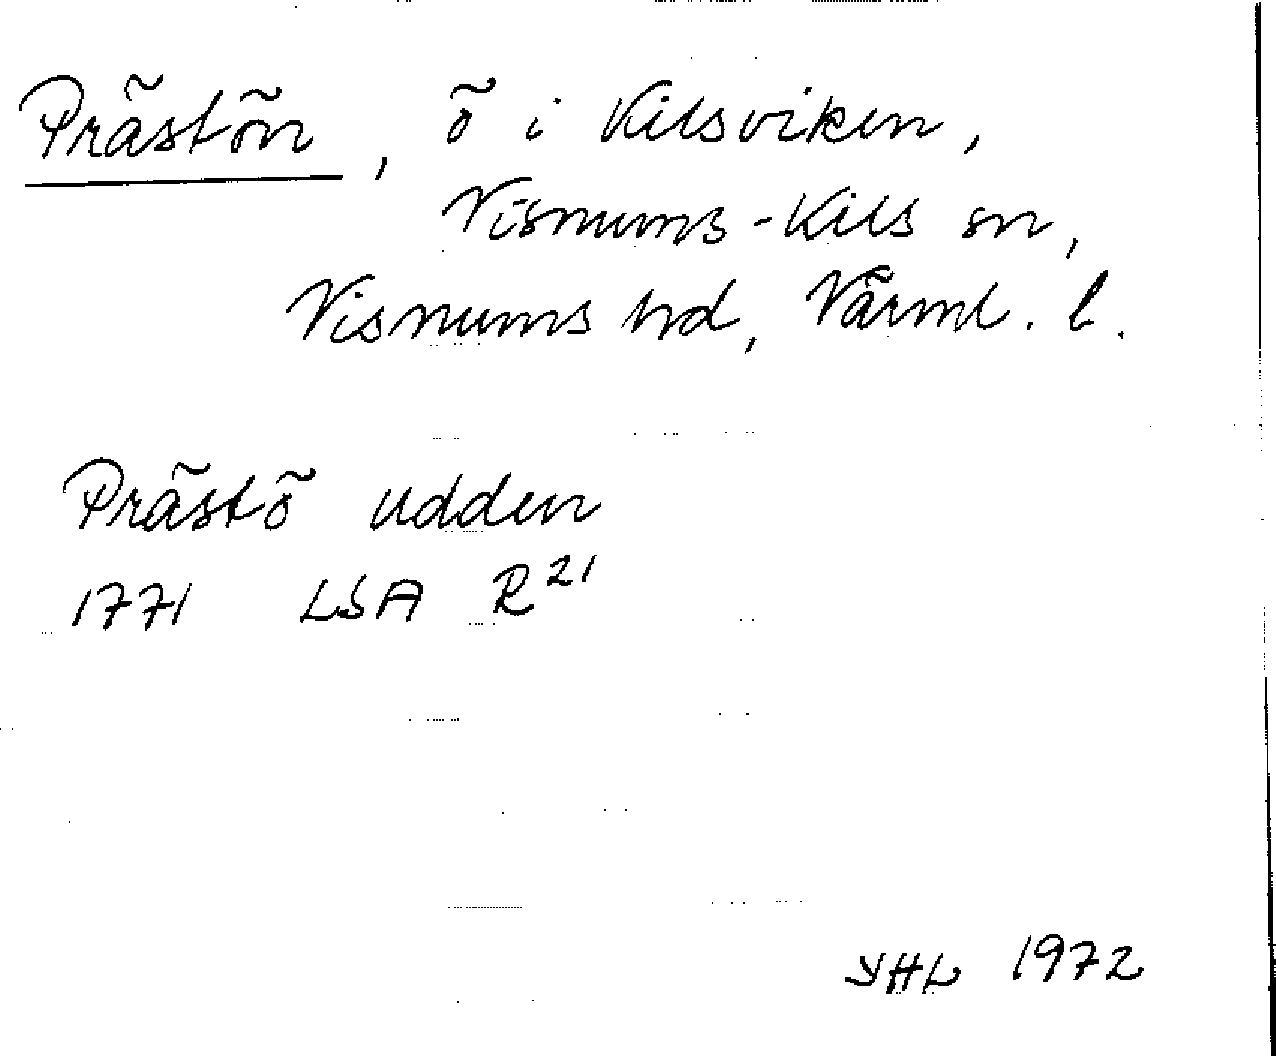 Prästön, ö i Kilsviken,
Visnums-Kils sn,
Visnums hd, Värml. l.
Prästö udden
1771 LSA R 21
YHL 1972